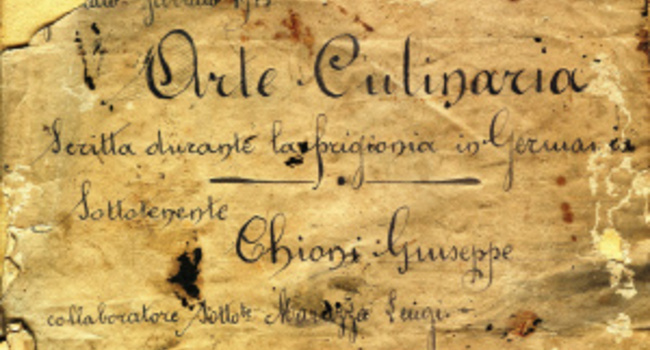 Arte Culinaria
Scritta durante la prigionia in Germania
Sottotenente
Chioni Giuseppe
collaboratore Sottote Marazza Luigi.